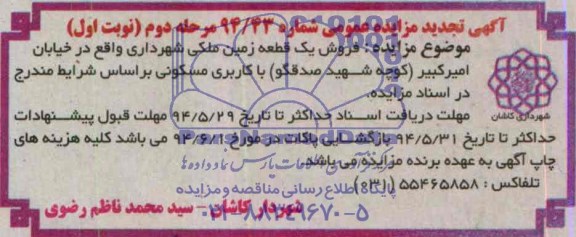 آگهی تجدید مزایده عمومی شماره ۹۴/۴۳ مرحله دوم (نوبت اول)
موضوع مزایده: فروش یک قطعه زمین ملکی شهرداری واقع در خیابان
امیرکبیر (کوچه شهید صدقگو) با کاربری مسکونی براساس شرایط مندرج
در اسناد مزایده.
مهلت دریافت اسناد حداکثر تا تاریخ ۹۴/۵/۲۹ مهلت قبول پیشنهادات
حداکثر تا تاریخ ۹۴/۵/۳۱ بازگشایی پاکات در مورخ ۹۴/۶/۱ می باشد کلیه هزینه های
چاپ آگهی به عهده برنده مزایده می باشد.
تلفاکس: ۵۵۴۶۵۸۵۸ (۰۳۱)
شهردار کاشان – سید محمد ناظم رضوی
شهرداری کاشان
پایگاه اطلاع رسانی مناقصه و مزایده
۰۲۱-۸۸۳۴۹۶۷۰-۵